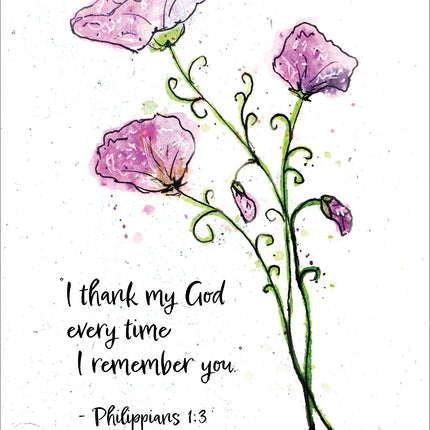 "I thank my God
every time
I remember you."
- Philippians 1:3